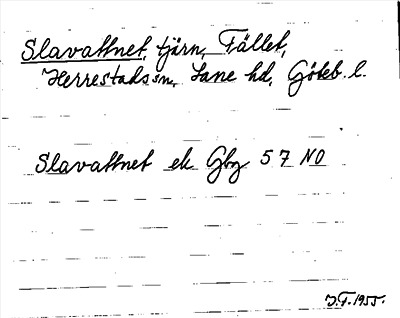 Slavattnet, tjärn, Fället,
Herrestads sn, Lane hd, Göteb. l.
Slavattnet ek Gbg 57 NO
J.F. 1955.